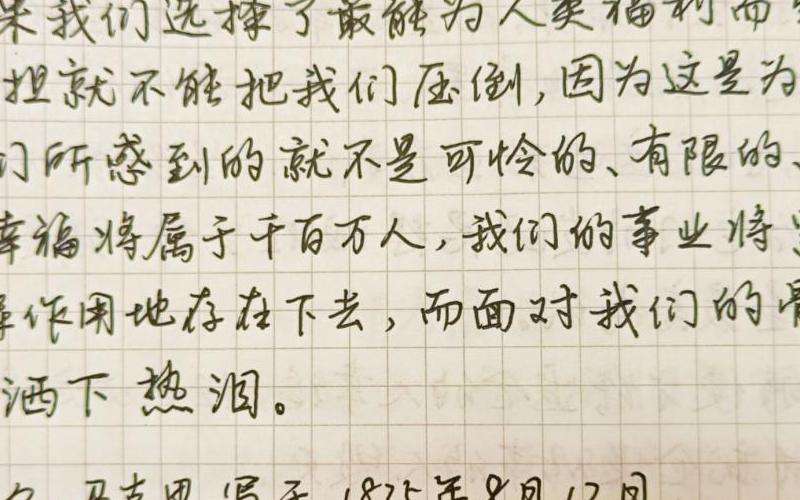 我们选择了最能为人类福利而
担就不能把我们压倒,因为这是为
们所感到的就不是可怜的、有限的、
幸福将属于千百万人,我们的事业将
作用地存在下去,而面对我们的骨
洒下热泪。
马克思 写于 1835年8月12日